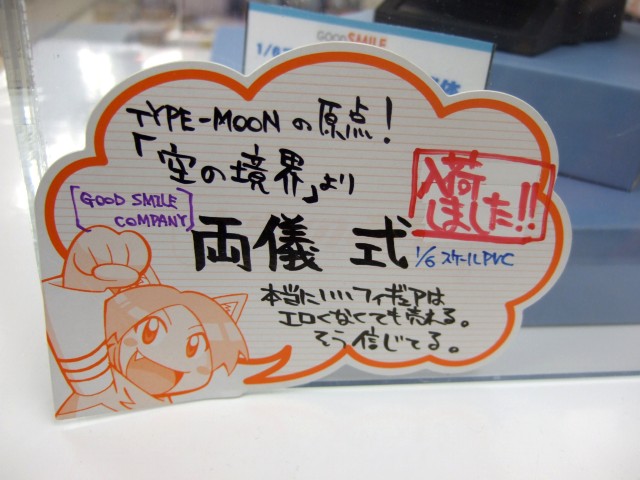 GOOD SMILE
TYPE-MOONの原点!
「空の境界」より
[GOOD SMILE
COMPANY]
両儀 式
1/6 スケールPVC
入荷
しました!!
本当にいいフィギュアは
エロくなくても売れる。
そう信じてる。